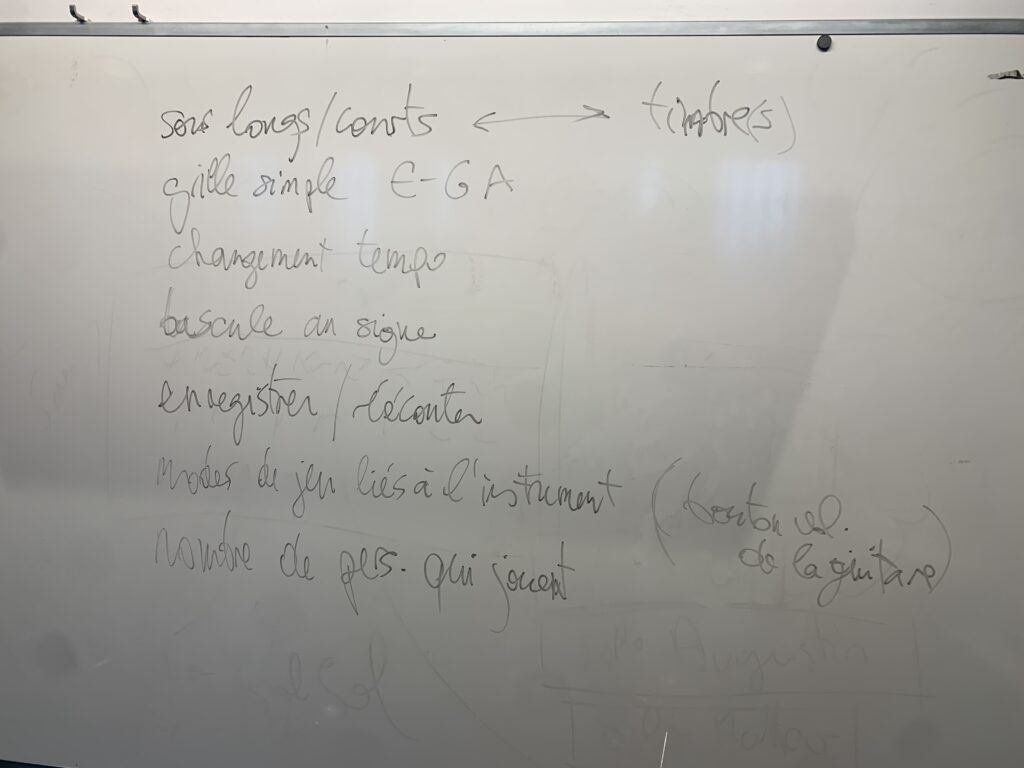 sons longs/courts ⟷ timbre(s)
grille simple E-G A
changement tempo
bascule au signe
enregistrer / réécouter
modes de jeu liés à l'instrument (bouton vol. de la guitare)
nombre de pers. qui jouent
Augustin